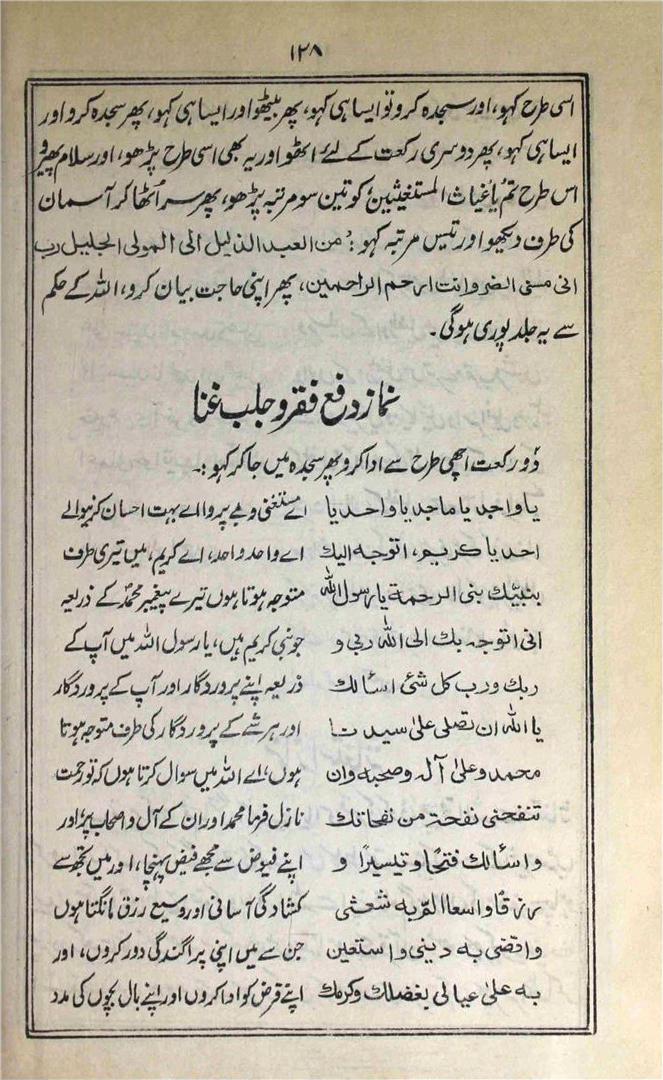 ۱۲۸
اسی طرح کہو، اور سجدہ کرو تو ایسا ہی کہو، پھر بیٹھو اور ایسا ہی کہو، پھر سجدہ کرو اور
ایسا ہی کہو، پھر دوسری رکعت کے لئے اٹھو اور یہ بھی اسی طرح پڑھو، اور سلام پھیرو
اس طرح تم یا غیاث المستغیثین کو تین سو مرتبہ پڑھو، پھر سر اُٹھا کر آسمان
کی طرف دیکھو اور تیس مرتبہ کہو: من العبد الذلیل الی المولی الجلیل رب
انی مسنی الضر وانت ارحم الراحمین، پھر اپنی حاجت بیان کرو، اللہ کے حکم
سے یہ جلد پوری ہوگی۔
نماز دفع فقر و جلب غنا
دو رکعت اچھی طرح سے ادا کرو پھر سجدہ میں جا کر کہو:۔
یا واجد یا ماجد یا واحد یا اے مستغنی و بے پروا اے بہت احسان کرنیوالے
احد یا کریم، اتوجه الیك اے واحد واحد، اے کریم، میں تیری طرف
بنبیّك نبی الرحمة یا رسول اللہ متوجہ ہوتا ہوں تیرے پیغمبر محمدؐ کے ذریعہ
انی اتوجه بك الی اللہ ربی و جو نبی کریم ہیں، یا رسول اللہ میں آپ کے
ربك ورب کل شئ اسألك ذریعہ اپنے پروردگار اور آپ کے پروردگار
یا اللہ ان تصلی علیٰ سیدنا اور ہر شے کے پروردگار کی طرف متوجہ ہوتا
محمد وعلیٰ آله وصحبه وان ہوں، اے اللہ میں سوال کرتا ہوں کہ تو رحمت
تنفحنی نفحة من نفحاتك نازل فرما محمد اور ان کے آل و اصحاب پر، اور
واسألك فتحًا وتیسیرًا و اپنے فیوض سے مجھے فیض پہنچا، اور میں تجھ سے
رزقًا واسعا المّ به شعثی کشادگی آسانی اور وسیع رزق مانگتا ہوں
واقضی به دینی واستعین جن سے میں اپنی پراگندگی دور کروں، اور
به علیٰ عیالی بفضلك وکرمك اپنے قرض کو ادا کروں اور اپنے بال بچوں کی مدد